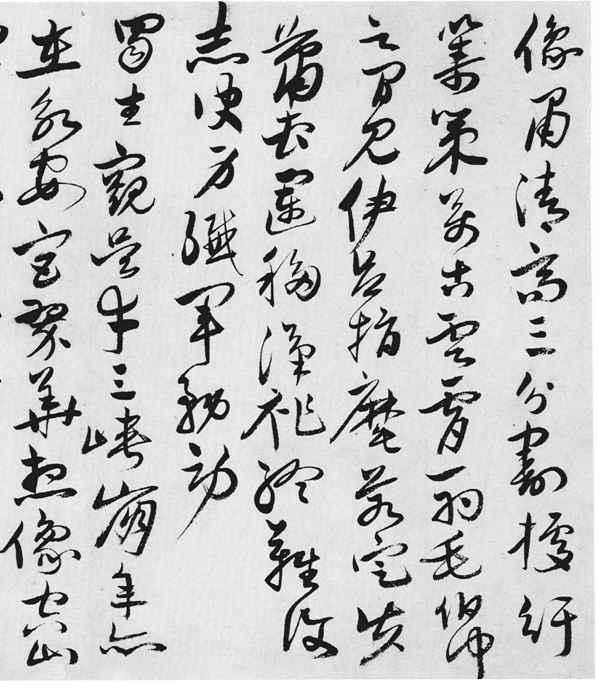 像肅清高三分割據紆
籌策萬古雲霄一羽毛伯仲
之間見伊呂指麾若定失
蕭曹運移漢祚終難復
志決身殲軍務勞
蜀主窺吳幸三峽崩年亦
在永安宮翠華想像空山